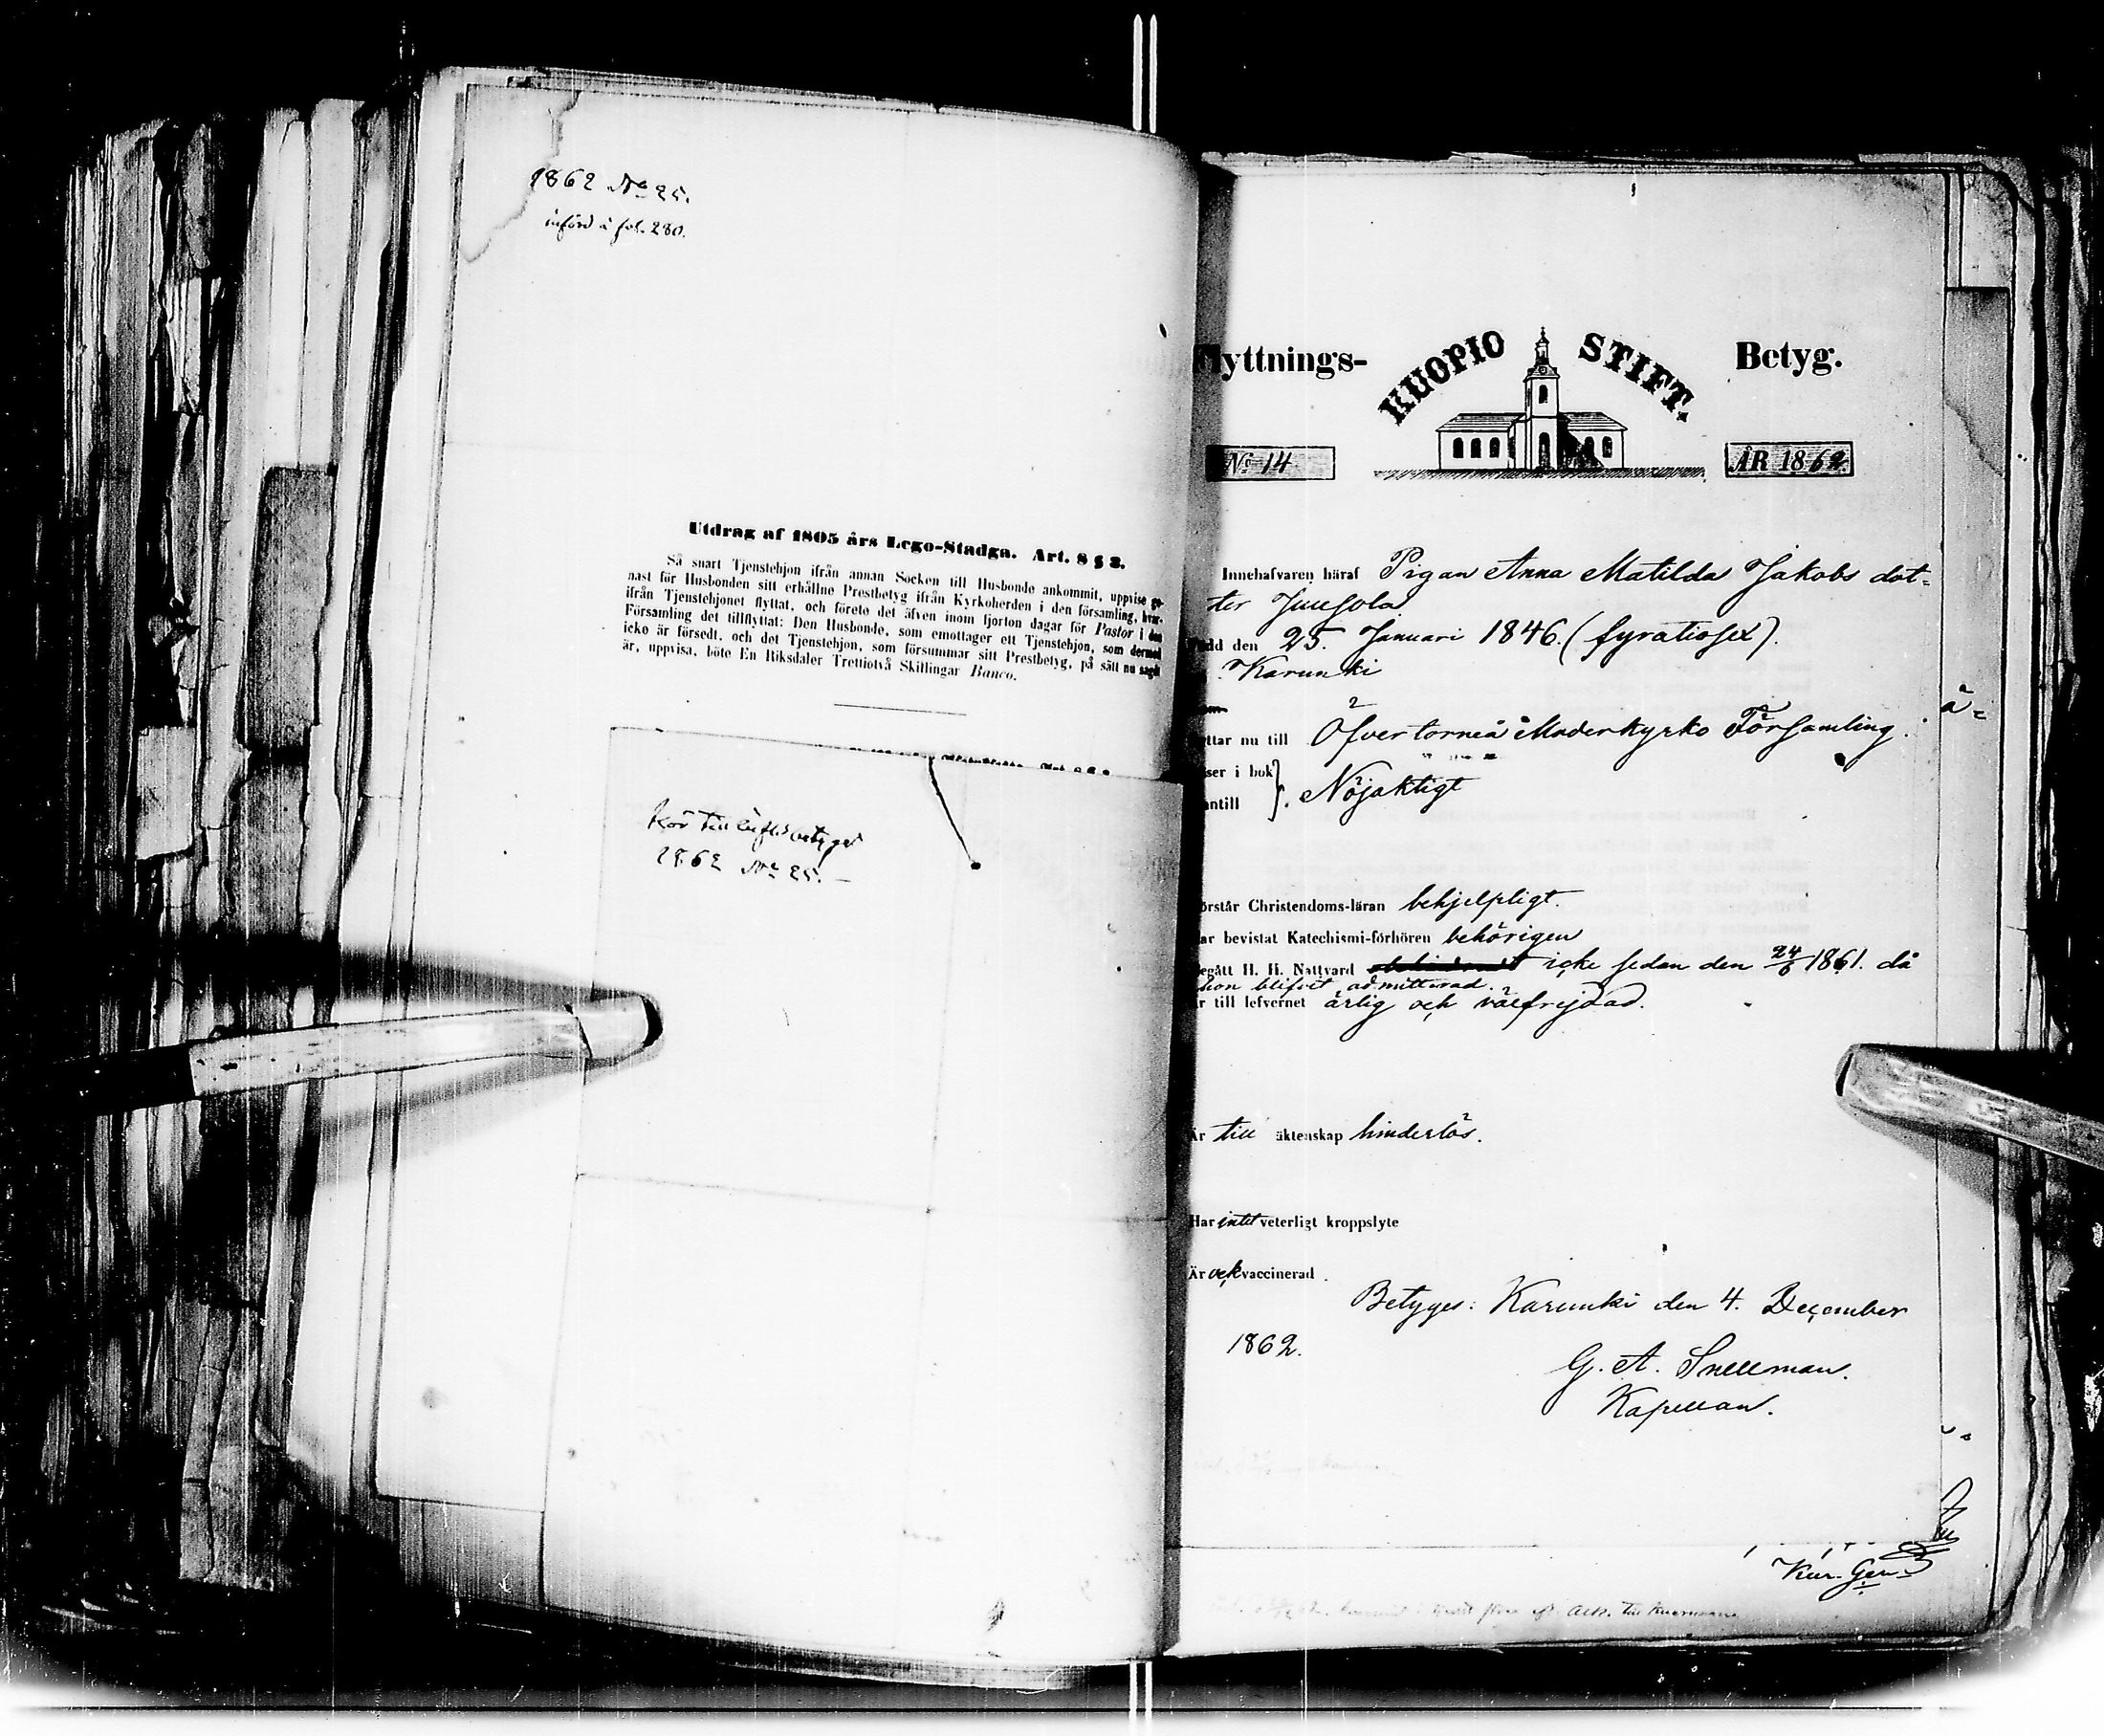 1862 No 25.
införd å fol. 280.
Utdrag af 1805 års Lego-Stadga. Art. 8 § 3.
Så snart Tjenstehjon ifrån annan Socken till Husbonde ankommit, uppvise ge-
nast för Husbonden sitt erhållne Prestbetyg ifrån Kyrkoherden i den församling, hvar-
ifrån Tjenstehjonet flyttat, och förete det äfven inom fjorton dagar för Pastor i den
Församling det tillflyttat: Den Husbonde, som emottager ett Tjenstehjon, som dermed
icke är försedt, och det Tjenstehjon, som försummar sitt Prestbetyg, på sätt nu sagdt
är, uppvisa, böte En Riksdaler Trettiotvå Skillingar Banco.
hör till
1862 No 25.
Flyttnings- KUOPIO STIFT. Betyg.
No 14 ÅR 1862
Innehafvaren häraf Pigan Anna Matilda Jakobs dot-
ter Juusola
född den 25. Januari 1846. (fyratiosex).
Karunki
å=
yttar nu till Öfvertorneå Moderkyrko Församling.
ser i bok
antill }. Nöjaktigt
örstår Christendoms-läran behjelpligt.
ar bevistat Katechismi-förhören behörigen
egått H. H. Nattvard icke sedan den 24/6 1861. då
hon blifvit admitterad.
r till lefvernet ärlig och välfrejdad.
Är till äktenskap hinderlös.
Har intet veterligt kroppslyte
Är och vaccinerad
Betyges: Karunki den 4. December
1862.
G. A. Snellman.
Kapellan.